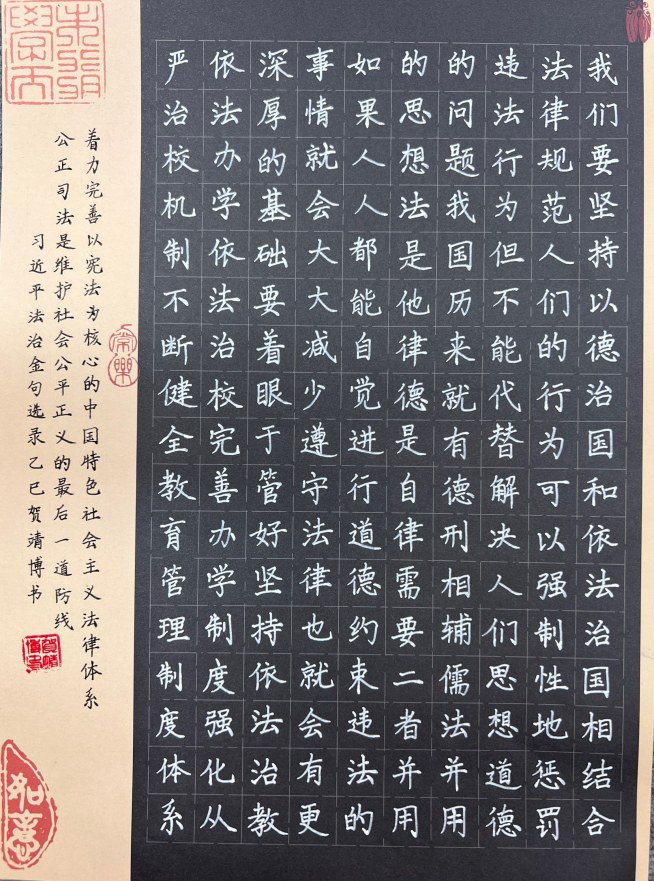 我们要坚持以德治国和依法治国相结合
法律规范人们的行为可以强制性地惩罚
违法行为但不能代替解决人们思想道德
的问题我国历来就有德刑相辅儒法并用
的思想法是他律德是自律需要二者并用
如果人人都能自觉进行道德约束违法的
事情就会大大减少遵守法律也就会有更
深厚的基础要着眼于管好坚持依法治教
依法办学依法治校完善办学制度强化从
严治校机制不断健全教育管理制度体系
着力完善以宪法为核心的中国特色社会主义法律体系
公正司法是维护社会公平正义的最后一道防线
习近平法治金句选录乙巳贺靖博书
如意